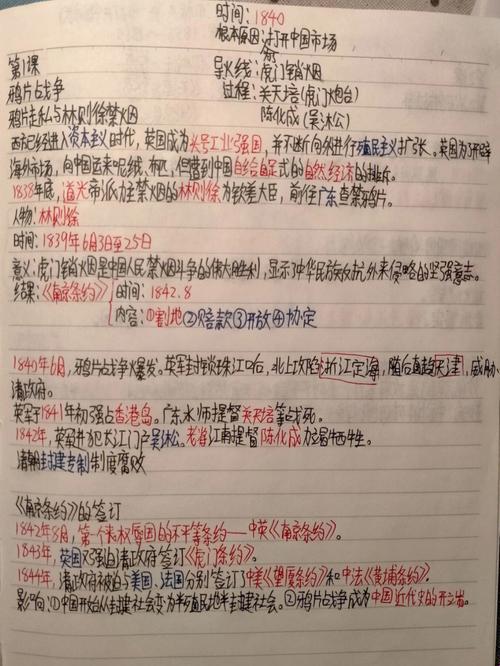 时间：1840
根本原因：打开中国市场
第1课
导火线：虎门销烟
鸦片战争
过程：关天培(虎门炮台)
鸦片走私与林则徐禁烟
陈化成(吴淞公)
西方已经进入资本主义时代，英国成为头号工业强国，并不断向外进行殖民主义扩张。英国为了开辟
海外市场，向中国运来呢绒、布匹，但遭到中国自给自足式的自然经济的抵乐。
1838年底，道光帝派力主禁烟的林则徐为钦差大臣，前往广东查禁鸦片。
人物：林则徐
时间：1839年6月3日至25日
意义：虎门销烟是中国人民禁烟斗争的伟大胜利，显示了中华民族反抗外来侵略的坚强意志。
结果：《南京条约》
时间：1842.8
内容：①割地②赔款③开放④协定
1840年6月，鸦片战争爆发。英军封锁珠江口后，北上攻陷浙江定海，随后直趋天津，威胁
清政府。
英军于1841年初强占香港岛。广东水师提督关天培等战死。
1842年，英军进犯长江门户吴淞。老将江南提督陈化成力战牺牲。
清朝封建专制制度腐败
《南京条约》的签订
1842年8月，第一个丧权辱国的不平等条约——中英《南京条约》。
1843年，英国又强迫清政府签订《虎门条约》。
1844年，清政府被迫与美国、法国分别签订了中美《望厦条约》和中法《黄埔条约》.
影响：①中国开始从封建社会变为半殖民地半封建社会。②鸦片战争成为中国近代史的开端。